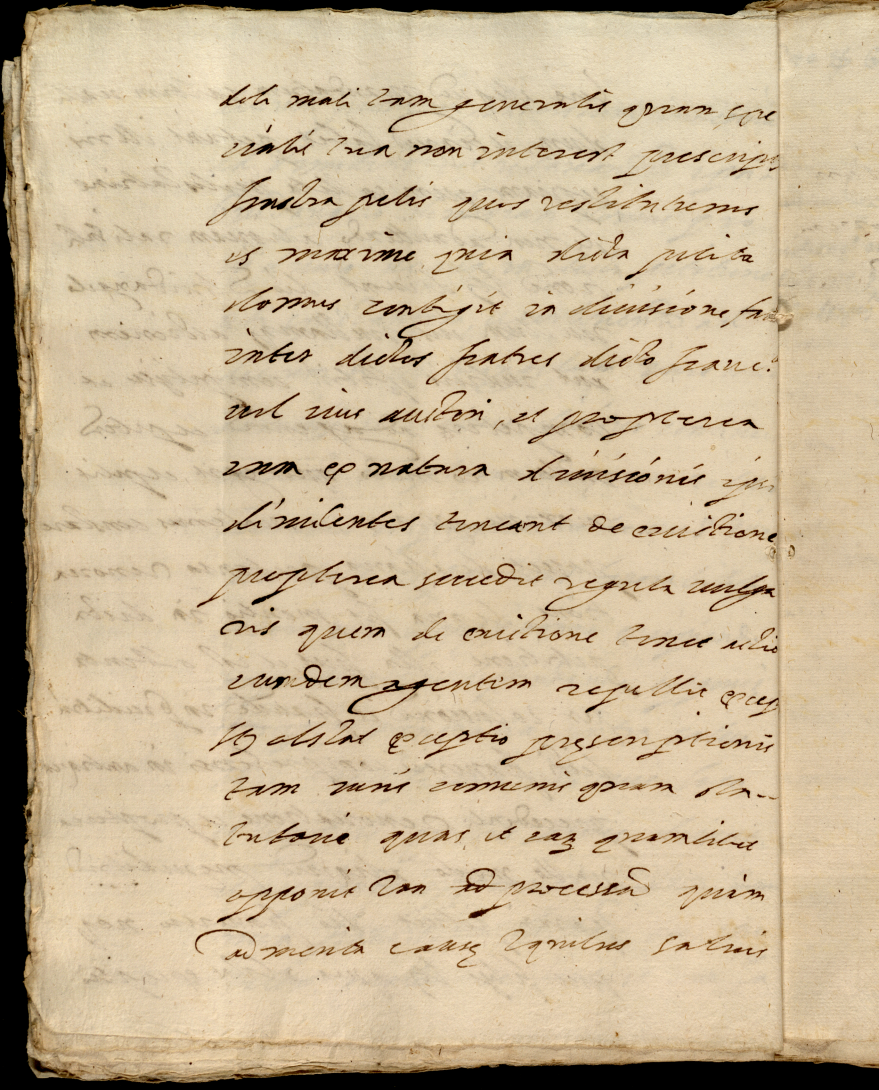 doli mali tam generalis quam spe
cialis tua non interest prescrips
frustra petis quos restituemus
et maxime quia dicta petita
domus contigit in diuisione fac
inter dictos fratres dicto franc.º
uel eius auctori, et propterea
cum ex natura diuisionis ipsi
diuidentes teneant de euictione
propterea succedit regula uulga
ris quem de euictione tenet actio
eundem agentem repellit excep
Itẽ obstat exceptio prescriptionis
tam iuris comunis quam sta-
tutorie quas, et eaꝝ quamlibet
opponit tam ad processũ quam
ad merita cause quibus saluis